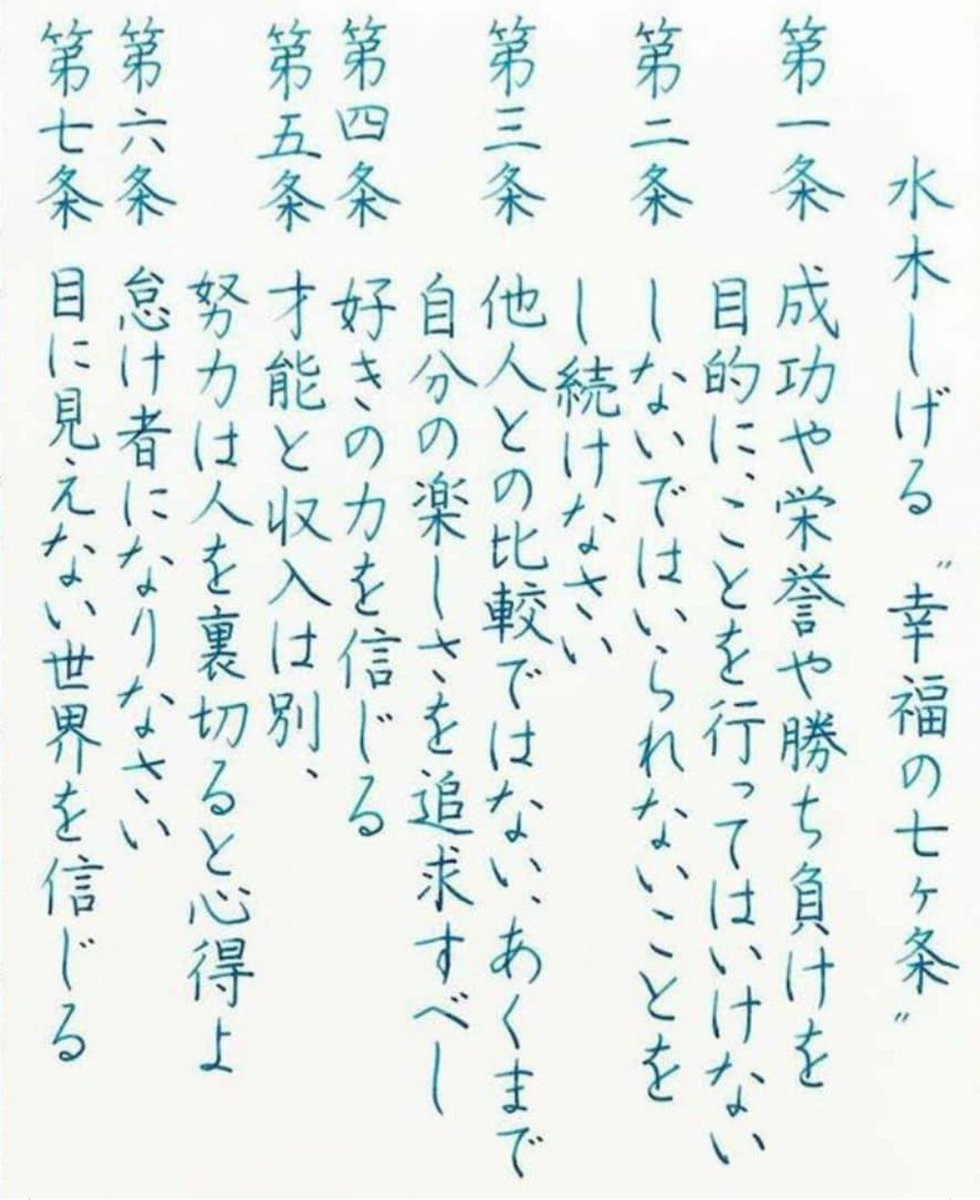 水木しげる〝幸福の七ヶ条〟
第一条 成功や栄誉や勝ち負けを
目的に、ことを行ってはいけない
第二条 しないではいられないことを
し続けなさい
第三条 他人との比較ではない、あくまで
自分の楽しさを追求すべし
第四条 好きの力を信じる
第五条 才能と収入は別、
努力は人を裏切ると心得よ
第六条 怠け者になりなさい
第七条 目に見えない世界を信じる